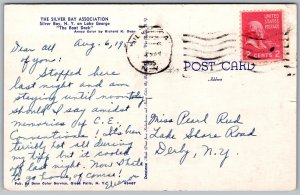 THE SILVER BAY ASSOCIATION
Silver Bay, N. Y. on Lake George
"The Boat Dock"
Ansco Color by Richard K. Dean
Dear all Aug. 6, 195
of you:
Stopped here
last night and am
staying until noon
should I say amidst
memories of C.E.
Conventions! It's been
terribly hot all during
my trip but it cooled
off last night. Now I hate
to go home of course!
Pub. by Dean Color Service, Glens Falls, N. Y.
POST CARD
Address
2 CENTS 2
Miss Pearl Reed
Lake Shore Road
Derby, N.Y.